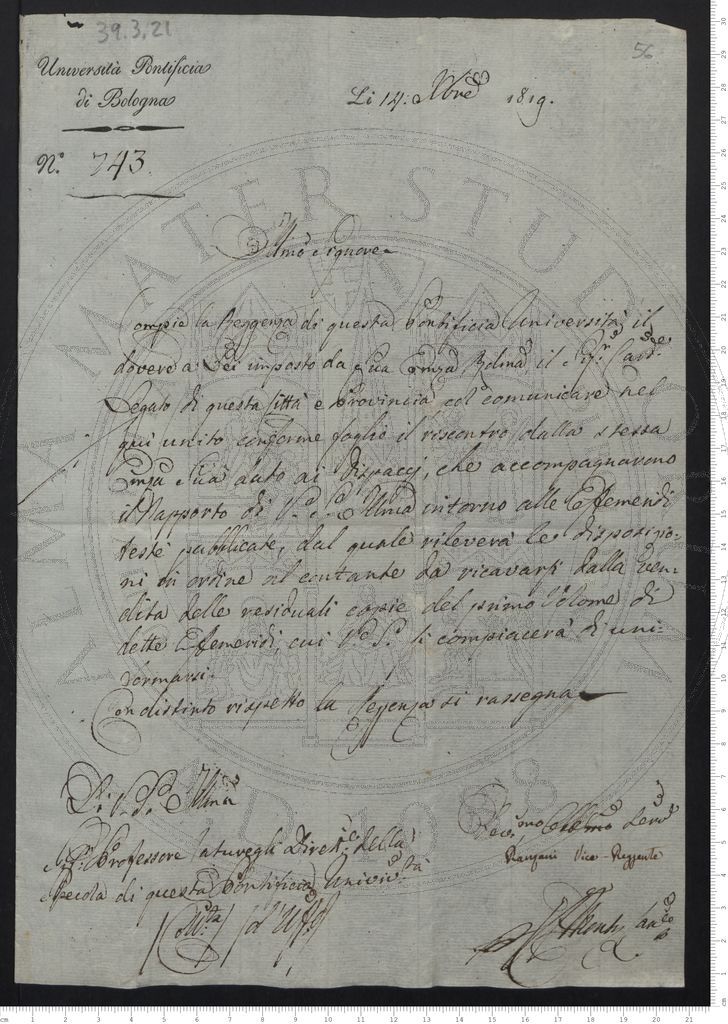 39.3.21
56
Università Pontificia
di Bologna
Li 14. Xbre 1819.
N.º 743.
Illmo Signore
Compie la Reggenza di questa Pontificia Università il
dovere a Lei imposto da Sua Emza Rma il Sigr Card.e
Legato di questa Città e Provincia col comunicare nel
qui unito conforme foglio il riscontro dalla stessa
Emza Sua dato ai Dispacci, che accompagnavano
il Rapporto di V. S. Illma intorno alle Effemeridi
testè pubblicate, dal quale rileverà le disposizio-
ni in ordine al contante da ricavarsi dalla ven-
dita delle residuali copie del primo Volome di
dette Effemeridi, cui V. S. si compiacerà di uni-
formarsi.
Con distinto rispetto la Reggenza si rassegna
Di V. S. Illma
Sigr Professore Caturegli Dirett.e della
Specola di questa Pontificia Univer.tà
Dev.mo Obbmo Servo
Ranzani Vice-Reggente
ALMA MATER STUDIORUM
A.D. 1088